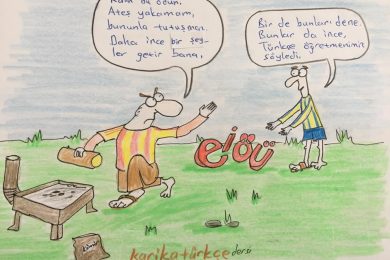 Kalın bu odun.
Ateş yakamam,
bununla tutuşmaz.
Daha ince bir şey-
ler getir bana,
Bir de bunları dene.
Bunlar da ince,
Türkçe öğretmenimiz
söyledi.
eiöü
kömür
karikatürkçe dersi